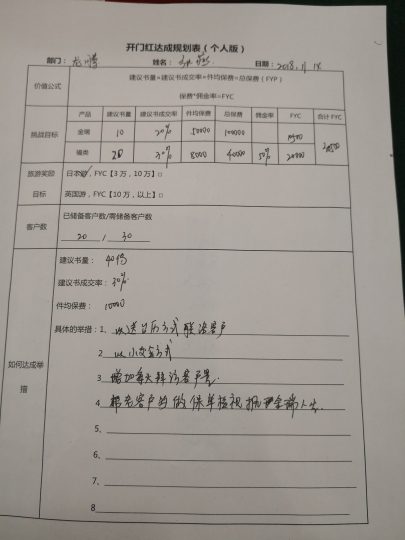 开门红达成规划表（个人版）
部门： 龙腾 姓名： 日期：2018.11.14
价值公式
建议书量×建议书成交率×件均保费=总保费（FYP）
保费*佣金率=FYC
挑战目标
产品 建议书量 建议书成交率 件均保费 总保费 佣金率 FYC 合计 FYC
金瑞 10 20% 50000 100000
福满 20 30% 8000 40000 50% 20000
旅游奖励目标
日本游，FYC【3 万，10 万】
英国游，FYC【10 万，以上】
客户数
已储备客户数/需储备客户数
20 / 30
如何达成举措
建议书量： 40份
建议书成交率： 30%
件均保费： 10000
具体的举措：1、以送台历方式联络客户
2 以小交会方式
3 增加每天拜访客户量.
4 帮老客户的做保单检视
5、
6、
7、
8